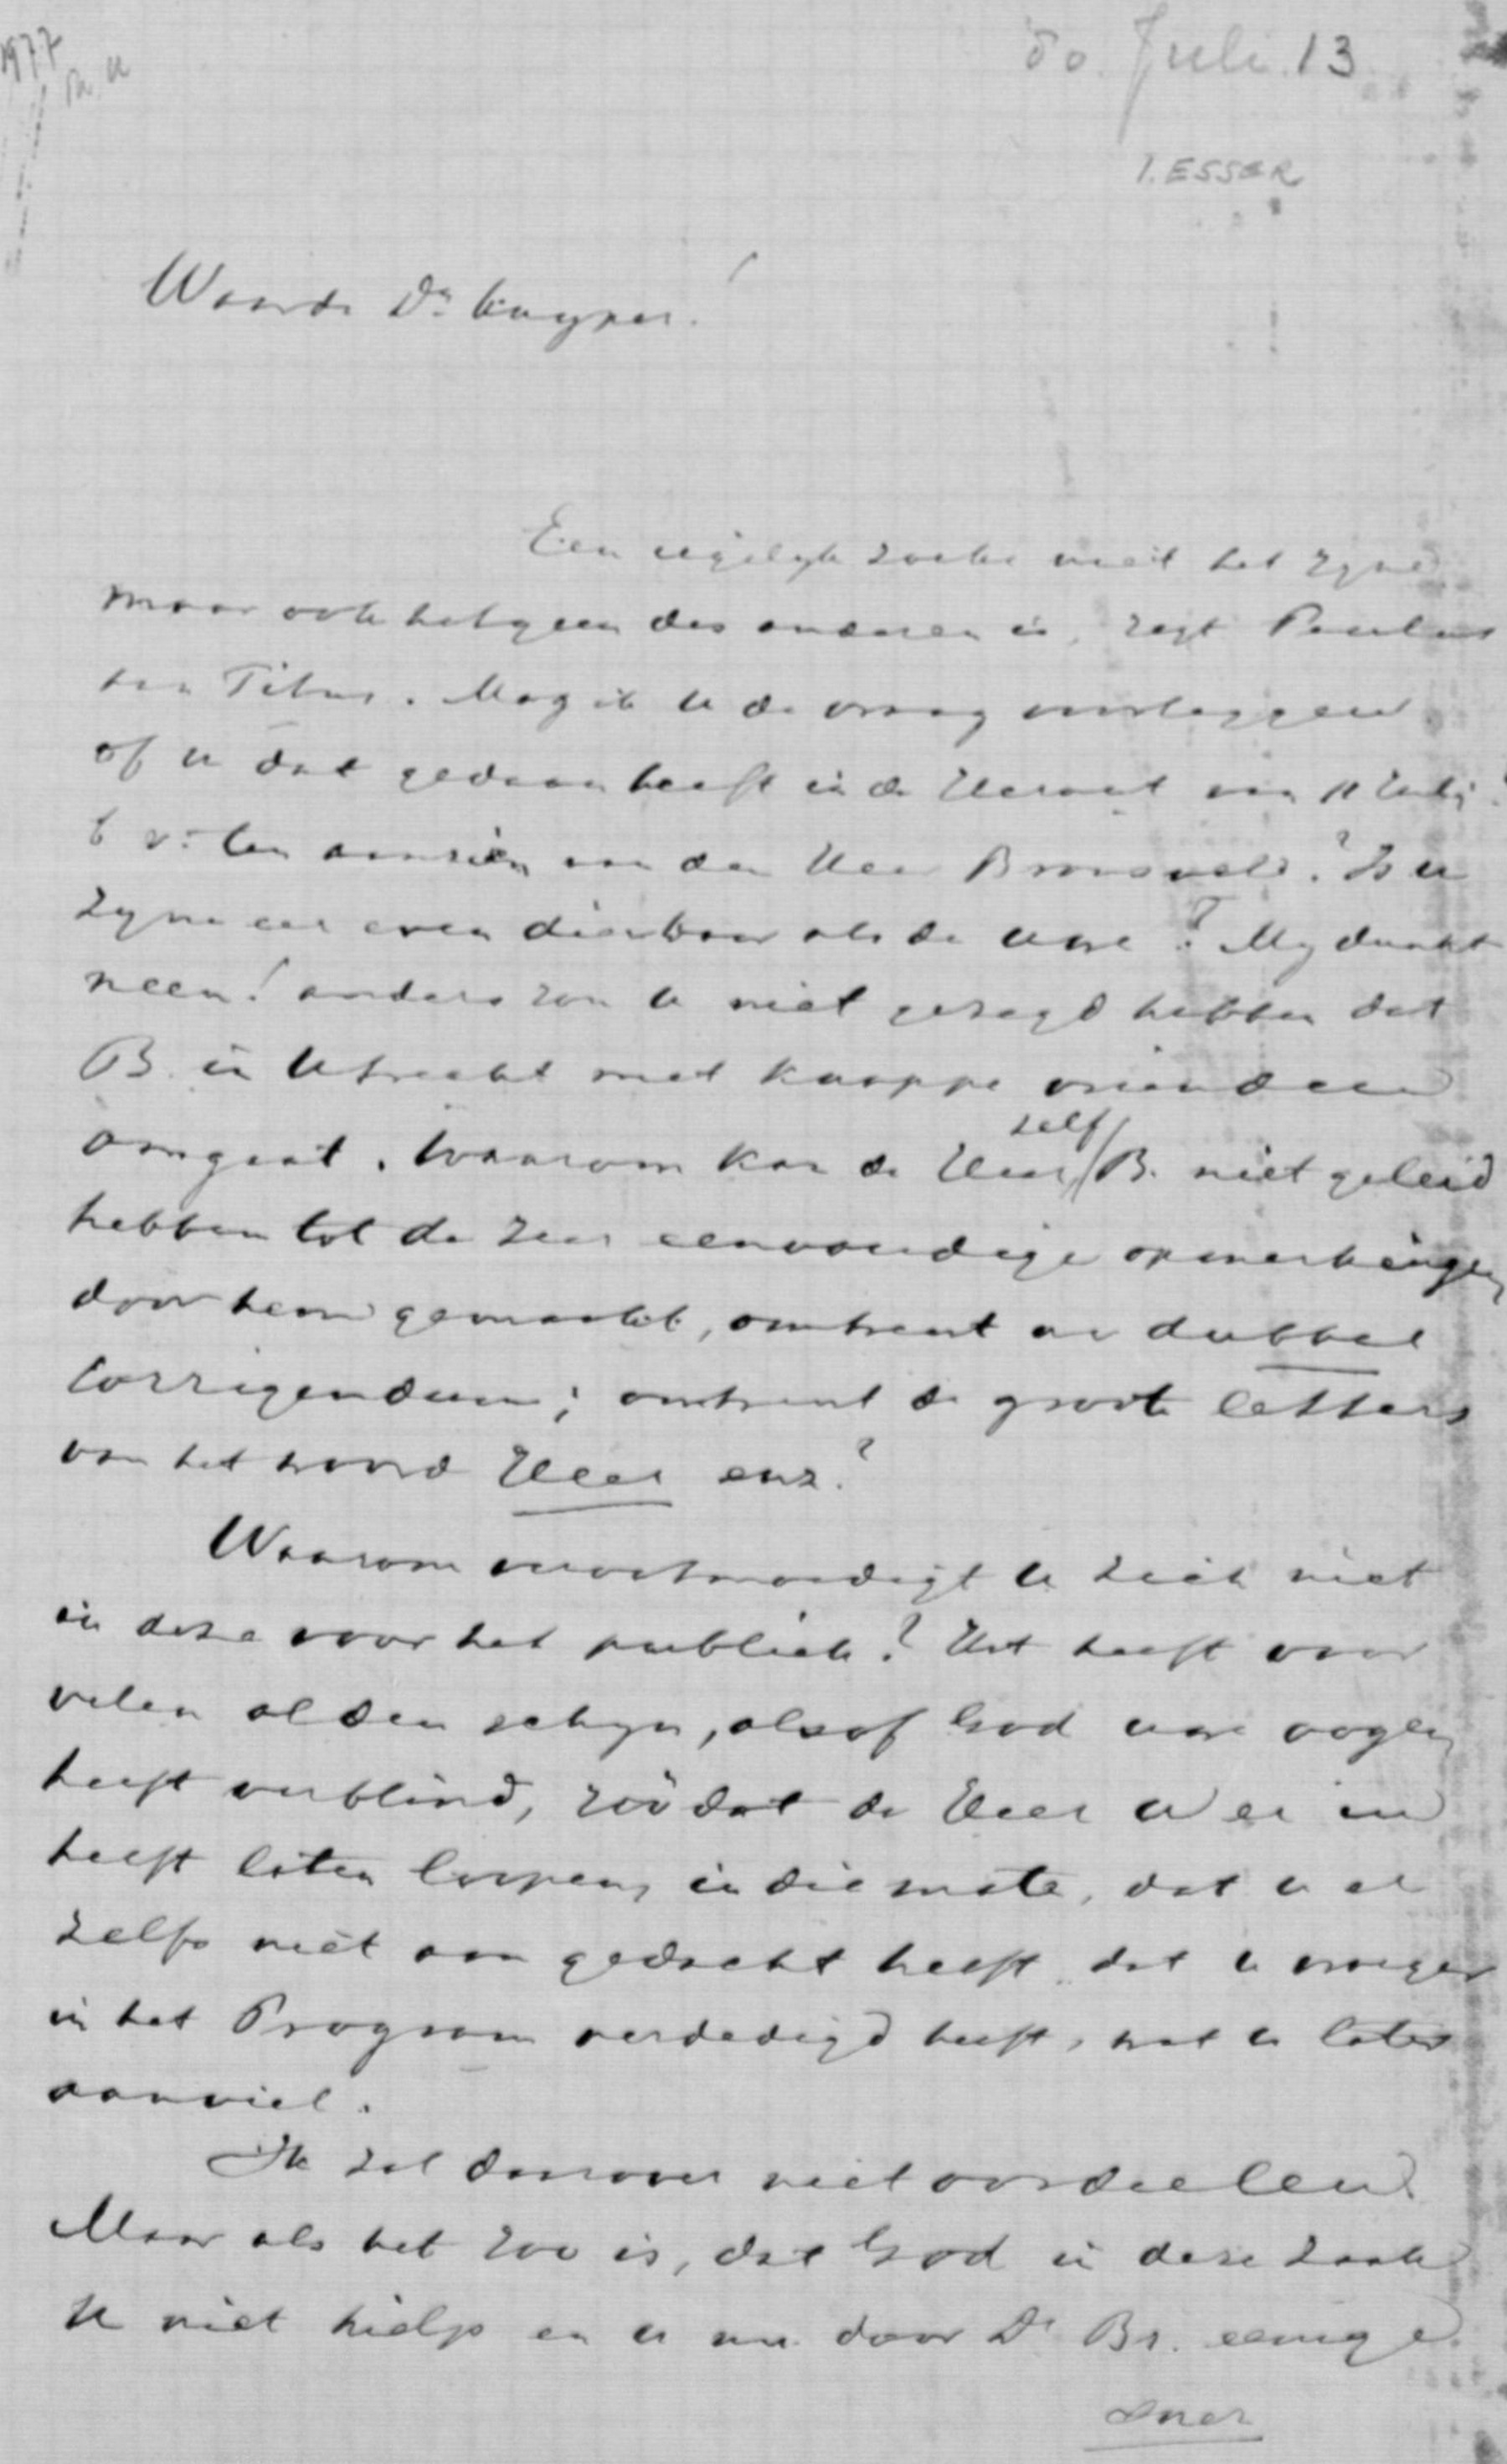 1977
80. Juli 13
I. ESSER
Waarde Dr. Kuyper!
Een iegelijk zoeke niet het zyne
maar ook hetgeen des anderen is, zegt Paulus
aan Titus. Mag ik U de vraag voorleggen
of U dat gedaan heeft in de Heraut van 11 Julij
ten aanzien van den Heer Bronsveld? Is U
zyne eer even dierbaar als de uwe? My dunkt
neen! anders zou U niet gezegd hebben dat
B. in Utrecht met knappe vrienden
omgaat. Waarom kan de Heer zelf B. niet geleid
hebben tot de zeer eenvoudige opmerkingen
door hem gemaakt, omtrent uw dubbel
Corrigendum; omtrent de groote letters
van het woord Heer enz.?
Waarom verootmoedigt U zich niet
in deze voor het publiek? Het heeft voor
velen al den schyn, alsof God uwe oogen
heeft verblind, zoodat de Heer U er in
heeft laten loopen, in die mate, dat U er
zelfs niet aan gedacht heeft dat U vroeger
in het Program verdedigd heeft, wat U later
aanviel.
Ik zal daarover niet oordeelen.
Maar als het zoo is, dat God in deze zaak
U niet hielp en U nu door Dr Br. eenige